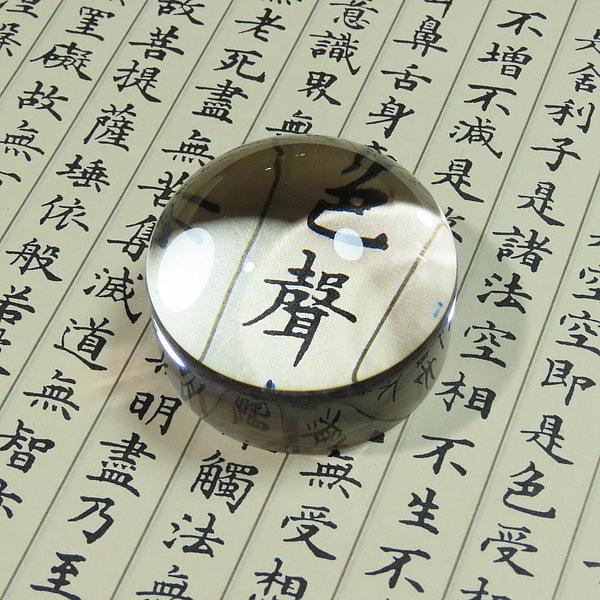 空即是色受想
是舍利子是諸法空相不生不
不增不減是
無受想
鼻舌身
色聲
觸法無
意識界無
明盡乃至
無老死盡無苦集滅道無智亦
故菩提薩埵依般若
罣礙故無